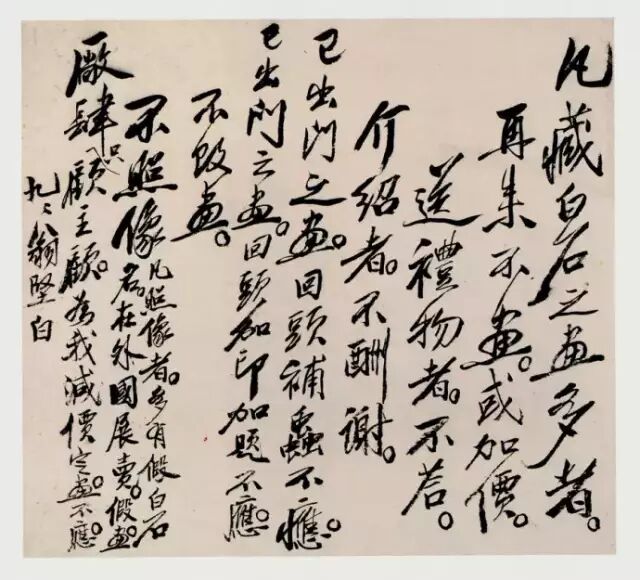 凡藏白石之畫多者。
再来不畫。或加價。
送禮物者。不答。
介紹者。不酬謝。
已出門之畫。回頭補蟲不應。
已出門之畫。回頭加印加題不應。
不改畫。
不照像。凡照像者。多有假白石
名。在外國展賣。假畫。
厰肆只顧主顧。為我減價定畫不應。
九二翁堅白